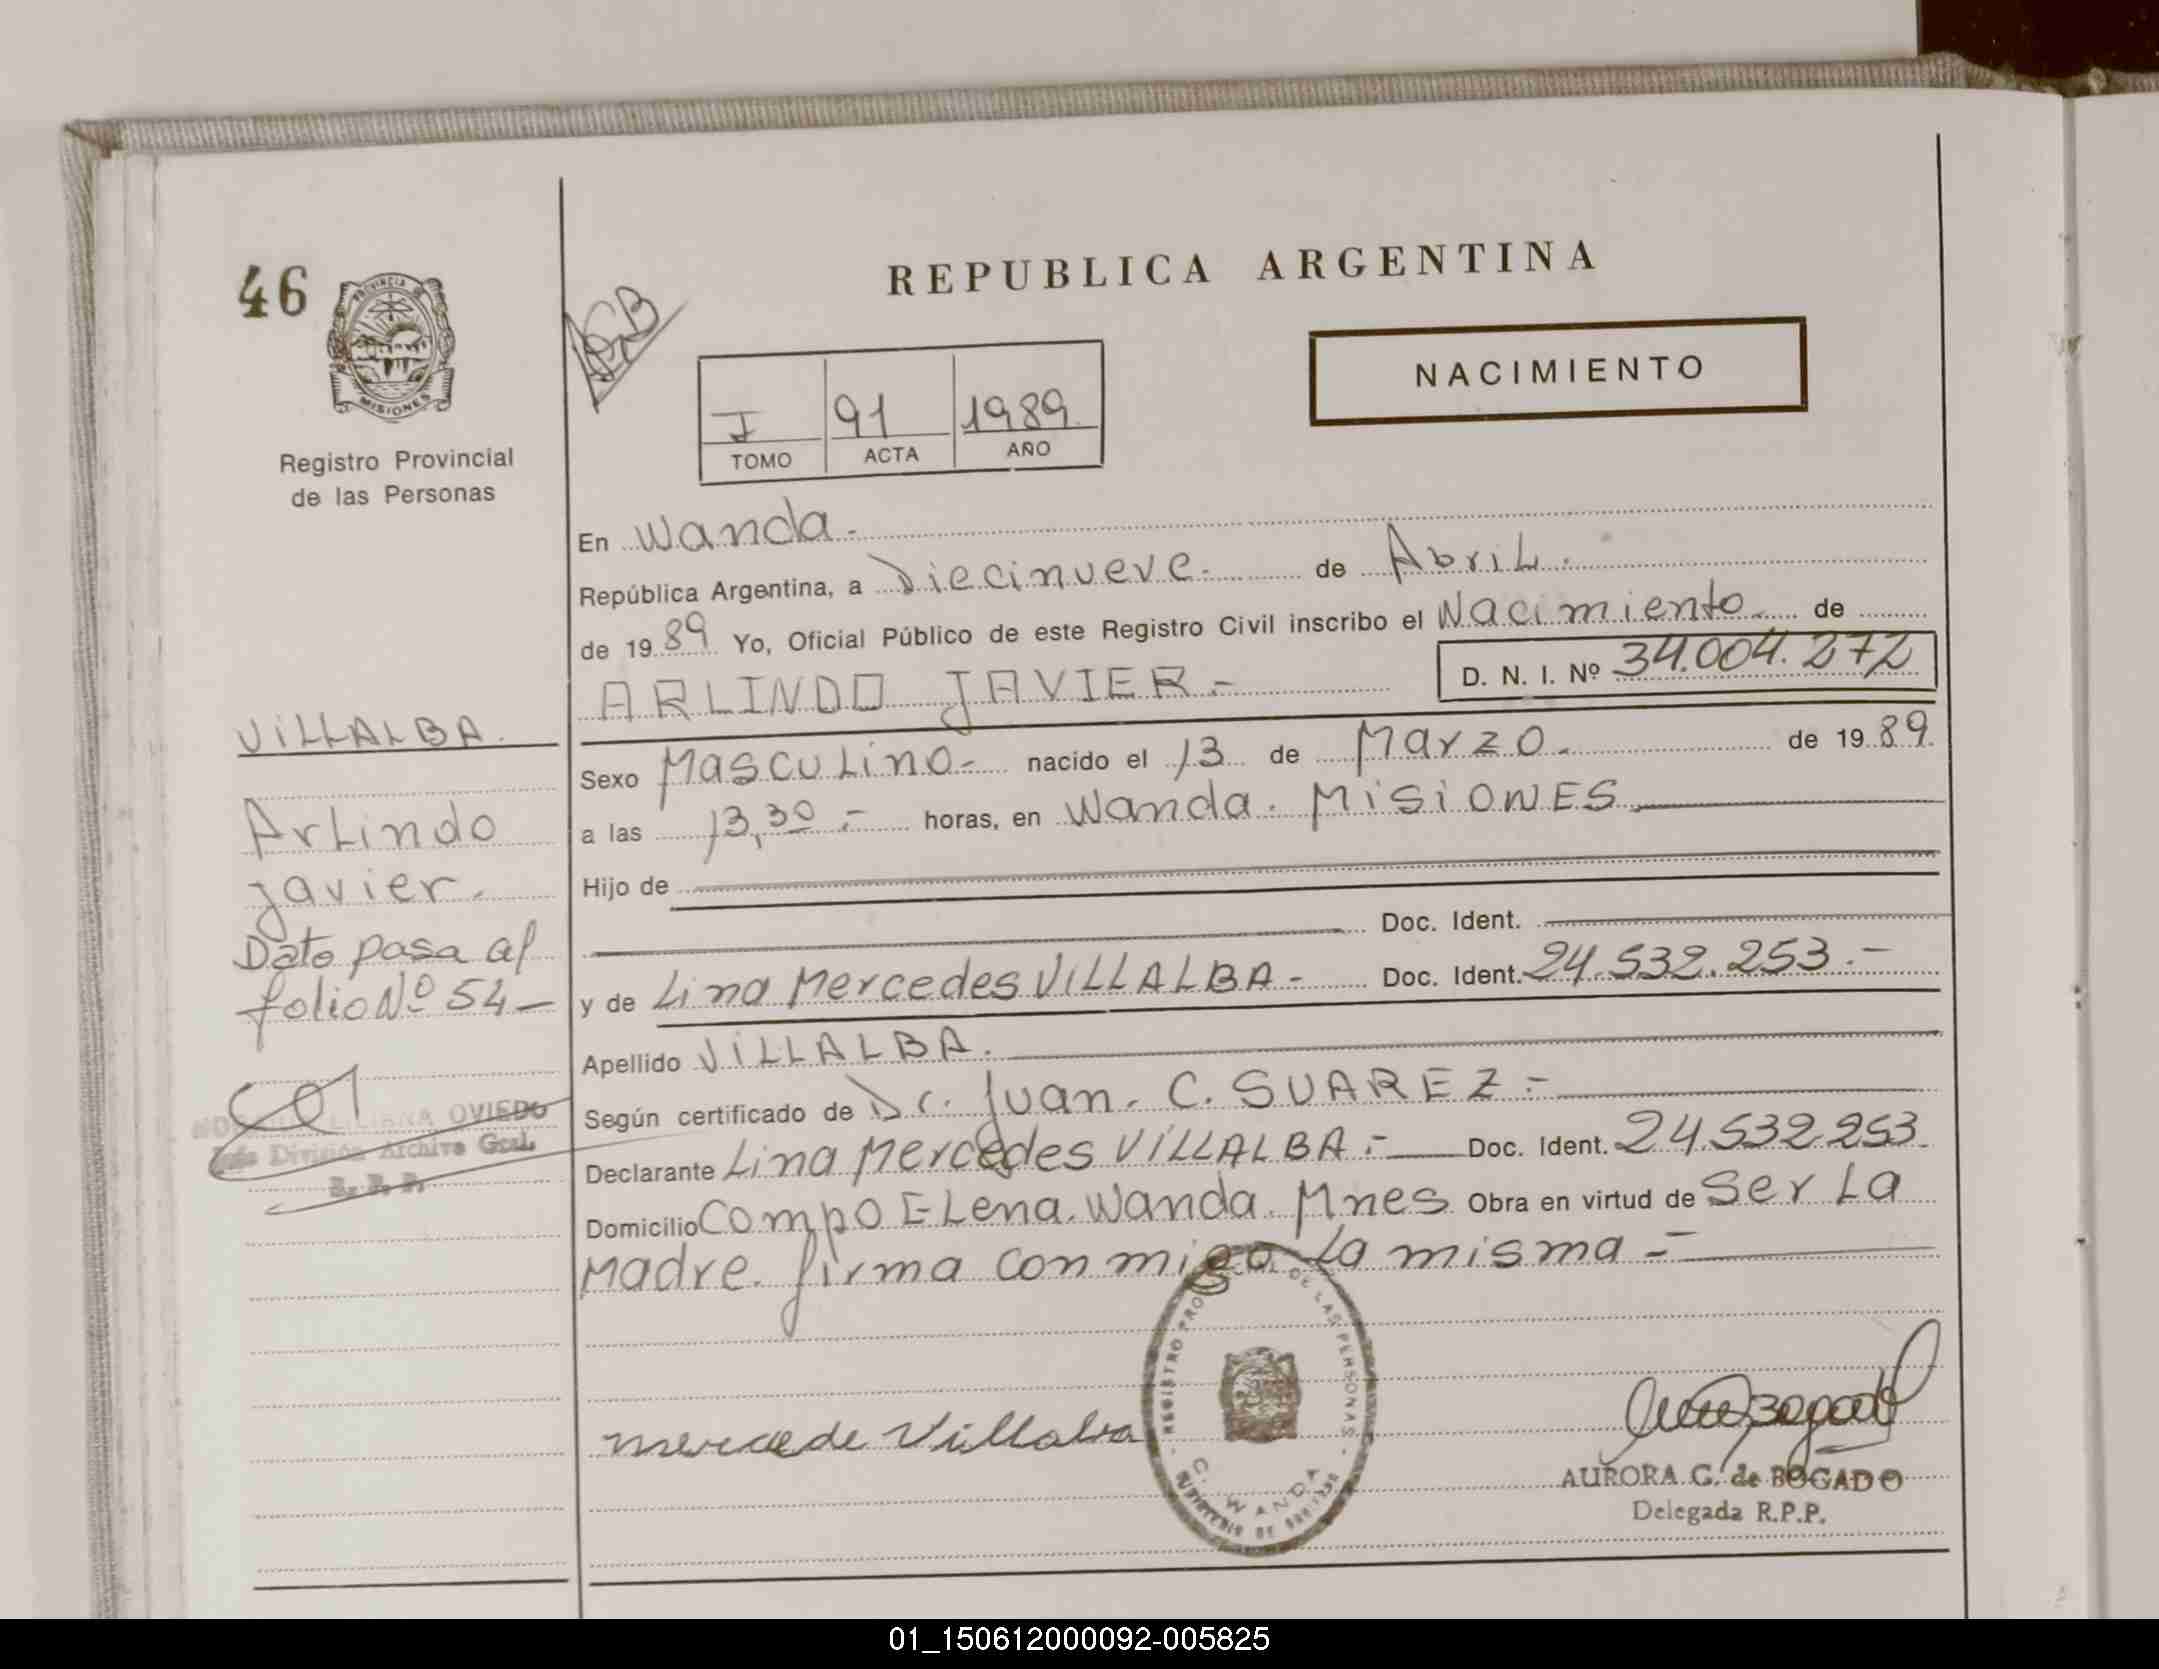 46
PROVINCIA DE
MISIONES
Registro Provincial
de las Personas
REPUBLICA ARGENTINA
NACIMIENTO
I 91 1989
TOMO ACTA AÑO
En Wanda.-
República Argentina, a Diecinueve.- de Abril.-
de 1989 Yo, Oficial Público de este Registro Civil inscribo el Nacimiento de
ARLINDO JAVIER.- D. N. I. Nº 34.004.272
Sexo Masculino- nacido el 13 de Marzo. de 1989.
a las 13,30.- horas, en Wanda. MISIONES
Hijo de
Doc. Ident.
y de Lina Mercedes VILLALBA- Doc. Ident. 24.532.253.-
Apellido VILLALBA.
Según certificado de Dr. Juan. C. SUAREZ.-
Declarante Lina Mercedes VILLALBA.- Doc. Ident. 24.532.253.
Domicilio Compo ELena. Wanda. Mnes Obra en virtud de Ser La
Madre. firma conmigo La misma.-
VILLALBA.
Arlindo
Javier.
Dato pasa al
folio Nº 54-
OVIEDO
División Archivo Gral.
R. P. P.
mercede Villalba
REGISTRO DE LAS PERSONAS
WANDA
AURORA G. de BOGADO
Delegada R.P.P.
01_150612000092-005825